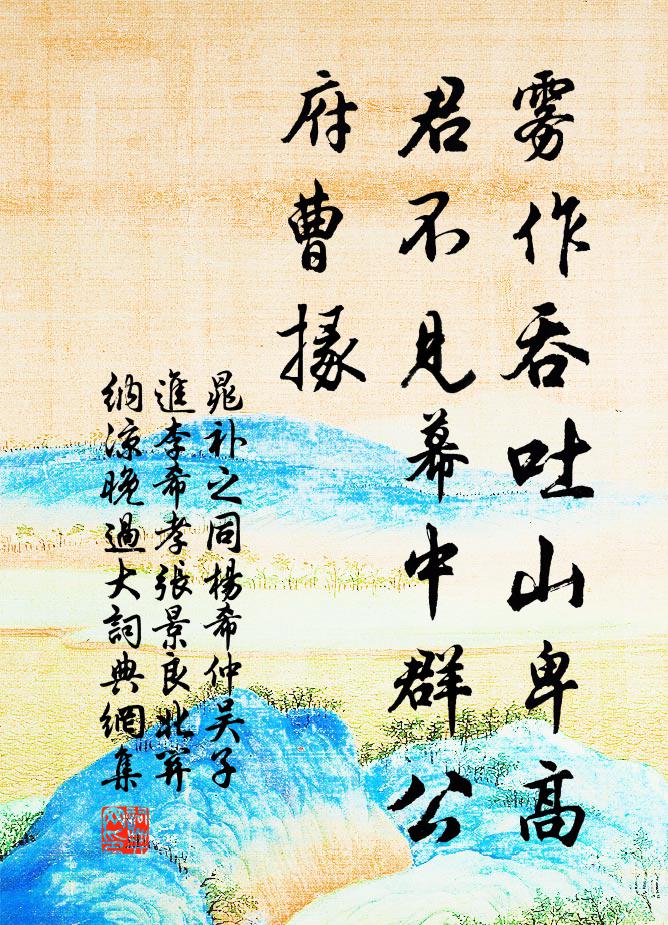 雾作吞吐山卑高
君不见幕中群公
府曹掾
晁补之同杨希仲吴子
进李希孝张景良北䢴
纳凉晚过大词典网集